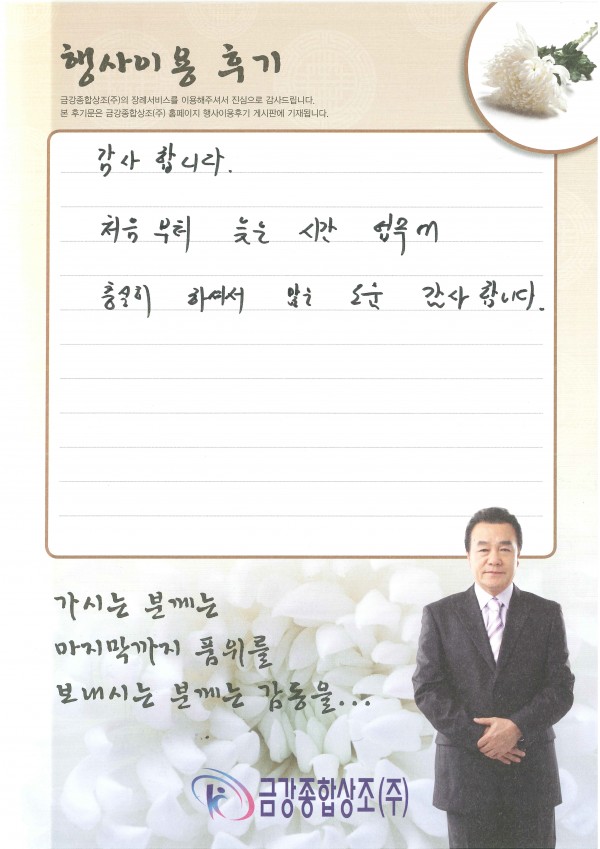 행사이용 후기
금강종합상조(주)의 장례서비스를 이용해주셔서 진심으로 감사드립니다.
본 후기문은 금강종합상조(주) 홈페이지 행사이용후기 게시판에 기재됩니다.
감사 합니다.
처음 부터 늦은 시간 업무에
충실히 하여서 도운 감사 합니다.
가시는 분께는
마지막까지 품위를
보내시는 분께는 감동을...
금강종합상조(주)